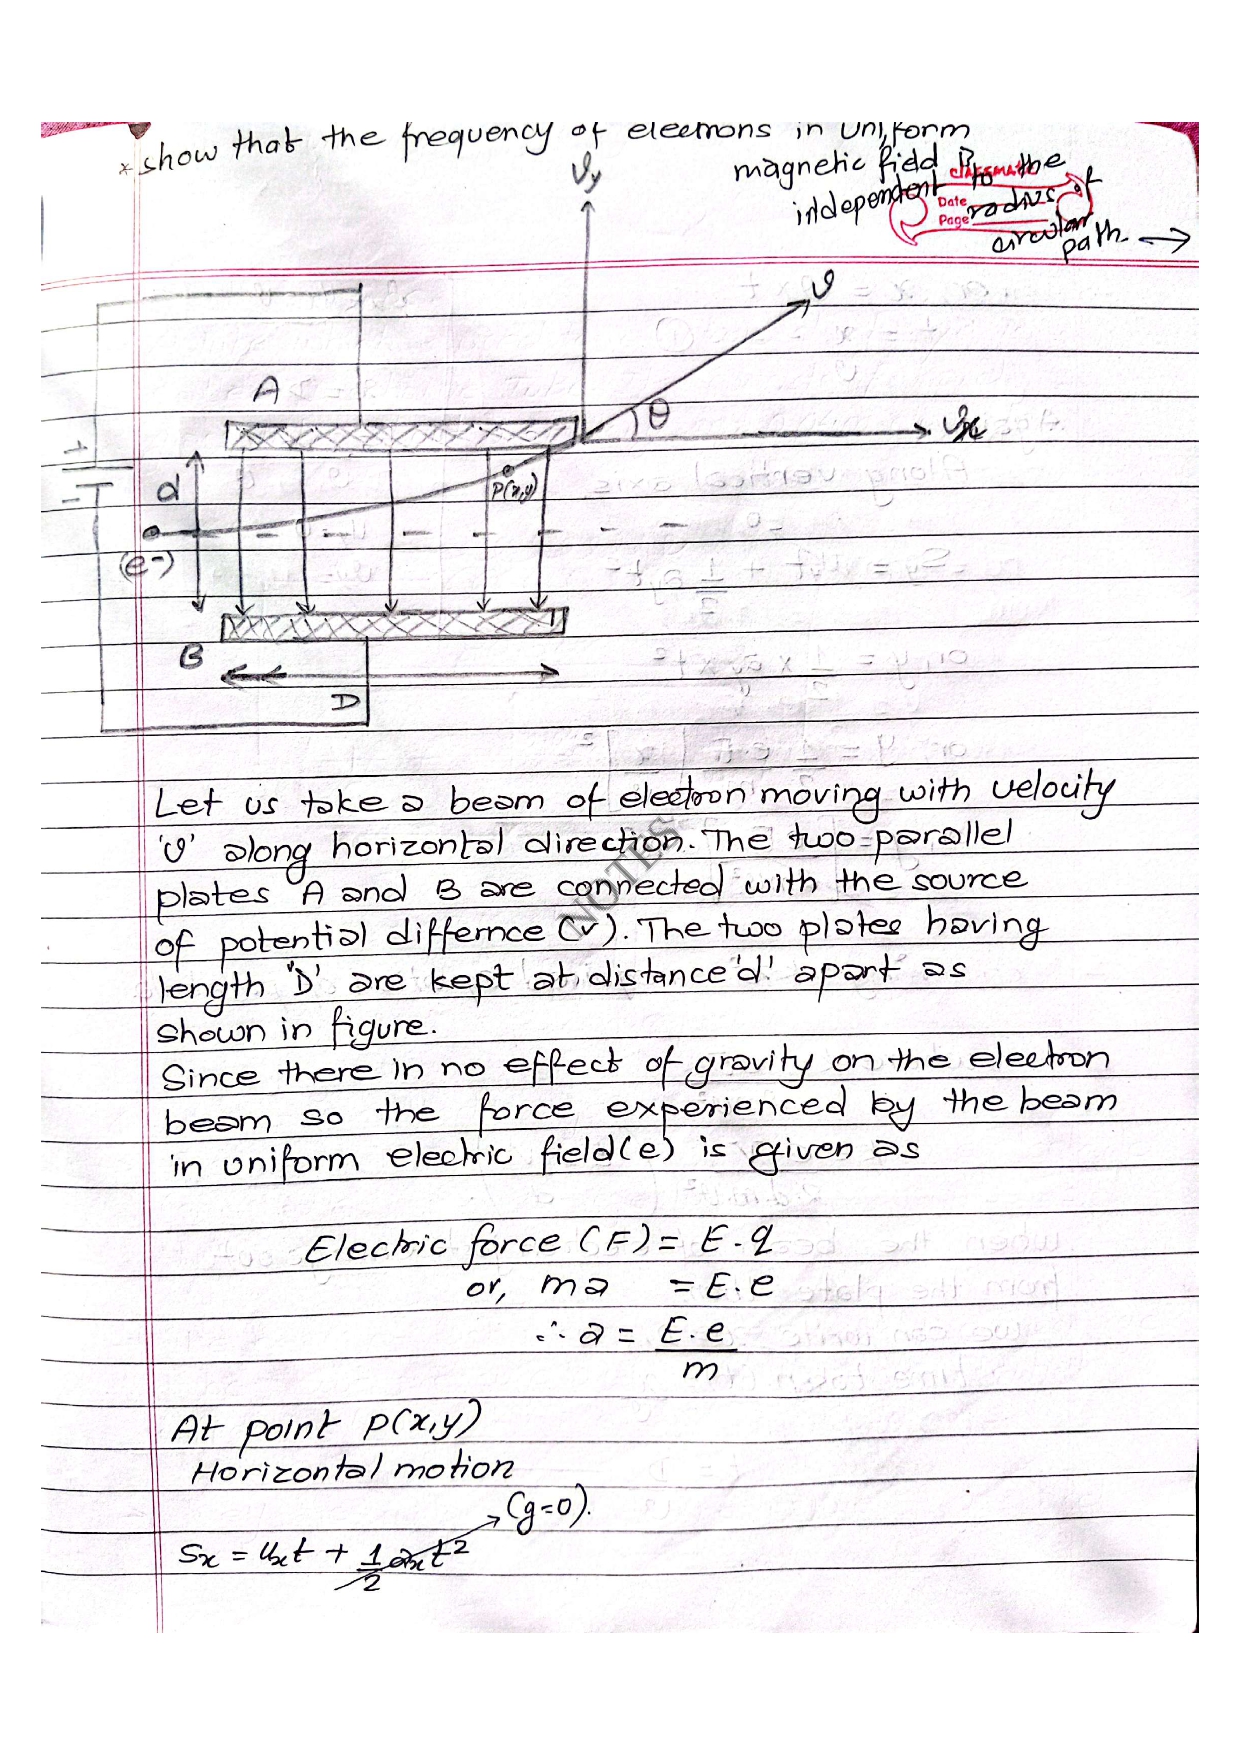 * show that the frequency of electrons in uniform
magnetic field is to the
independent radius of
circular
path. →
classmate
Date
Page
vy
v
θ
vx
A
d
P(x,y)
(e-)
B
D
Let us take a beam of electron moving with velocity
'v' along horizontal direction. The two parallel
plates A and B are connected with the source
of potential differnce (v). The two plates having
length 'D' are kept at distance 'd' apart as
shown in figure.
Since there in no effect of gravity on the electron
beam so the force experienced by the beam
in uniform electric field(e) is given as
Electric force (F) = E.q
or, ma = E.e
∴ a = E.e/m
At point P(x,y)
Horizontal motion
(g=0).
Sx = uxt + 1/2 axt²
NOTES